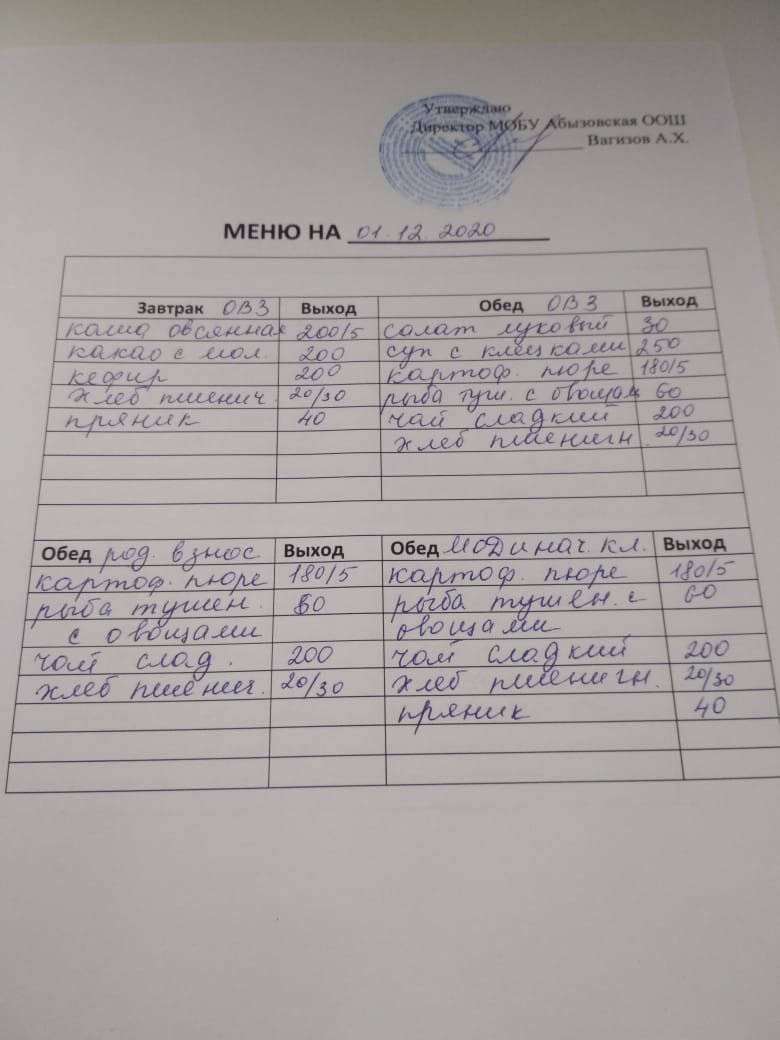 Утверждаю
Директор МОБУ Абызовская ООШ
Вагизов А.Х.
МЕНЮ НА 01.12.2020
Завтрак ОВЗ Выход Обед ОВЗ Выход
каша овсянная 200/5 салат луковый 30
какао с мол. 200 суп с клёцками 250
кефир 200 картоф. пюре 180/5
хлеб пшенич. 20/30 рыба туш. с овощам 60
пряник 40 чай сладкий 200
хлеб пшеничн. 20/30
Обед род. взнос Выход Обед МОДинач. кл. Выход
картоф. пюре 180/5 картоф. пюре 180/5
рыба тушен. 60 рыба тушен. с 60
с овощами овощами
чай слад. 200 чай сладкий 200
хлеб пшенич. 20/30 хлеб пшеничн. 20/30
пряник 40